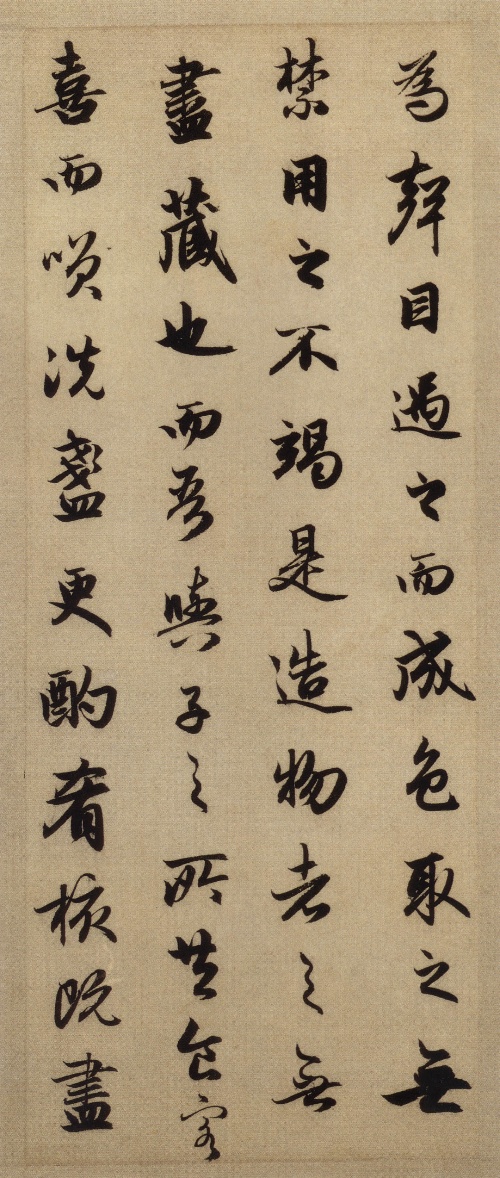 為聲目過之而成色取之無
禁用之不竭是造物者之無
盡藏也而吾與子之所共食客
喜而咲洗盞更酌肴核既盡